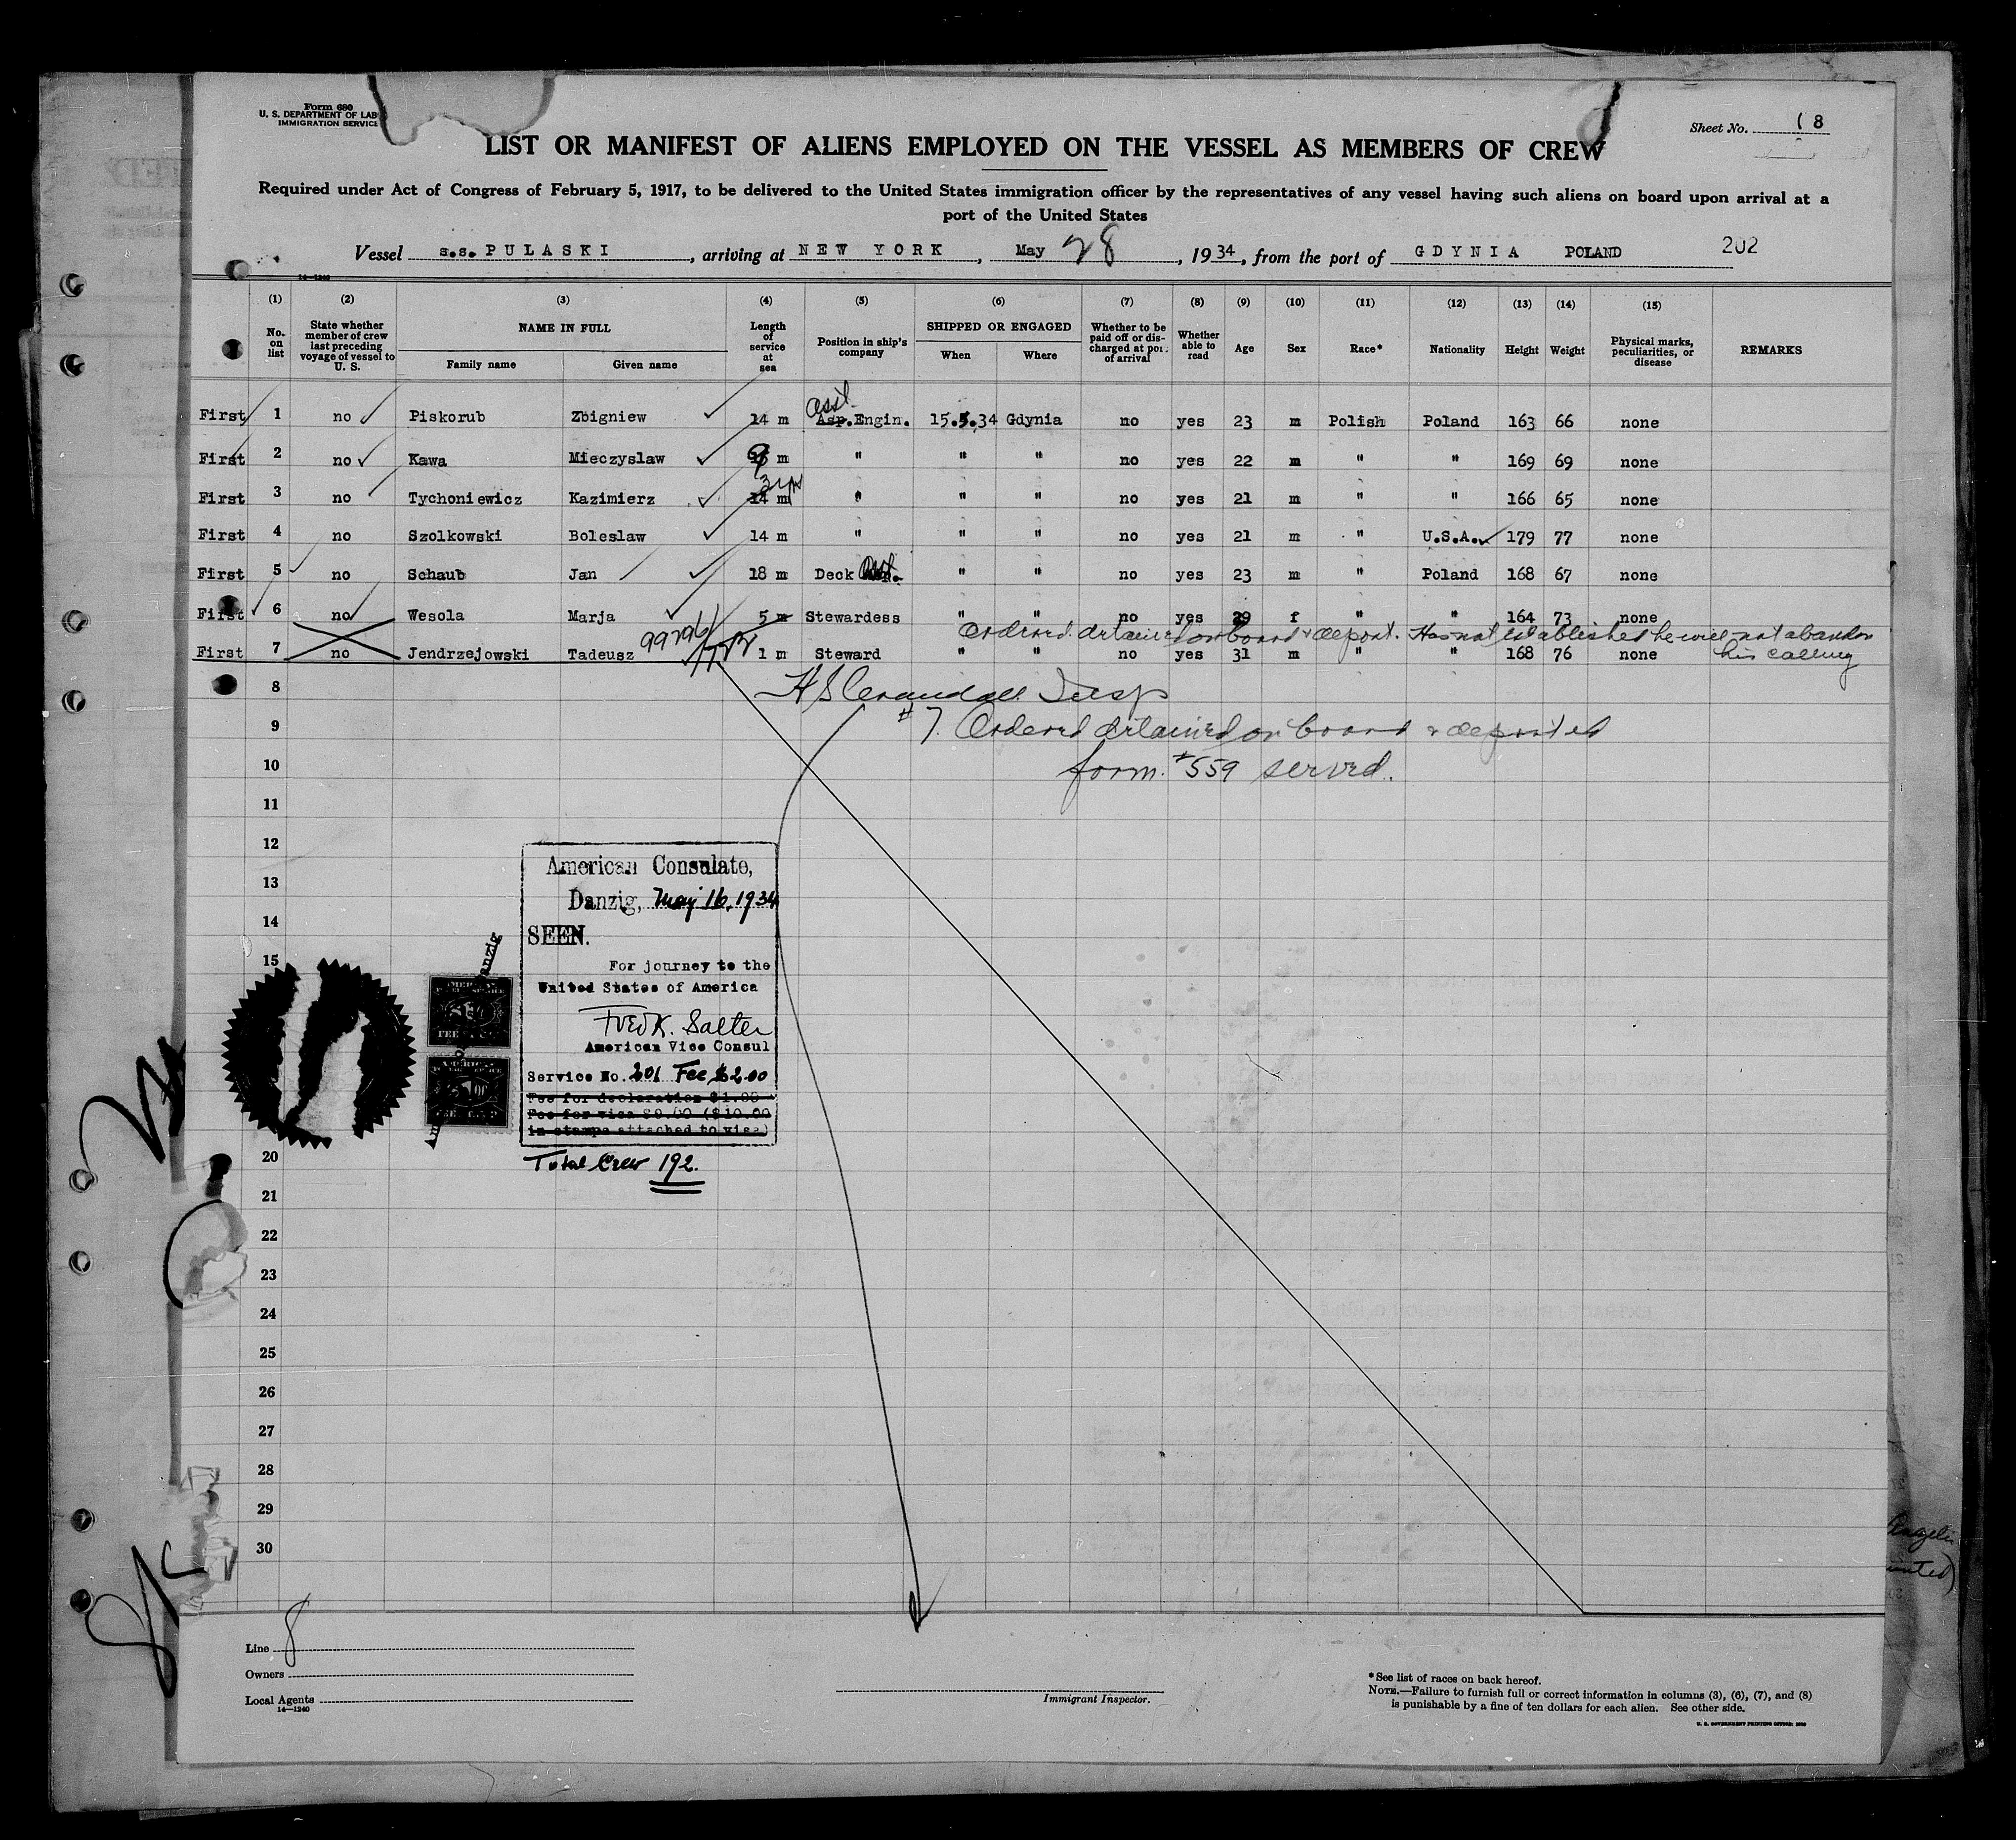 Form 680
U. S. DEPARTMENT OF LAB
IMMIGRATION SERVICE
Sheet No. 18
LIST OR MANIFEST OF ALIENS EMPLOYED ON THE VESSEL AS MEMBERS OF CREW
Required under Act of Congress of February 5, 1917, to be delivered to the United States immigration officer by the representatives of any vessel having such aliens on board upon arrival at a
port of the United States
Vessel s.s. PULASKI, arriving at NEW YORK, May 28, 1934, from the port of GDYNIA POLAND 202
14—1240
(1) (2) (3) (4) (5) (6) (7) (8) (9) (10) (11) (12) (13) (14) (15)
No. on list
State whether member of crew last preceding voyage of vessel to U. S.
NAME IN FULL
Family name Given name
Length of service at sea
Position in ship's company
SHIPPED OR ENGAGED
When Where
Whether to be paid off or discharged at port of arrival
Whether able to read
Age Sex Race* Nationality Height Weight
Physical marks, peculiarities, or disease
REMARKS
First 1 no Piskorub Zbigniew 14 m Asst. Asp.Engin. 15.5.34 Gdynia no yes 23 m Polish Poland 163 66 none
First 2 no Kawa Mieczyslaw 9 m " " " no yes 22 m " " 169 69 none
First 3 no Tychoniewicz Kazimierz 14 m " " " no yes 21 m " " 166 65 none
First 4 no Szolkowski Boleslaw 14 m " " " no yes 21 m " U.S.A. 179 77 none
First 5 no Schaub Jan 18 m Deck Asst. " " no yes 23 m " Poland 168 67 none
First 6 no Wesola Marja 5 m Stewardess " " no yes 29 f " " 164 73 none
99296/ Ordered detained on board & deport. Has not established he will not abandon
First 7 no Jendrzejowski Tadeusz 1 m Steward " " no yes 31 m " " 168 76 none his calling
8 H S Crandall Insp
9 #7. Ordered detained on board & deported
10 form #559 served.
11
12
American Consulate,
13
Danzig, May 16, 1934
14
SEEN.
15
For journey to the
United States of America
Fred K. Salter
American Vice Consul
Service No. 201 Fee $2.00
Fee for declaration $1.00
Fee for visa $9.00 ($10.00
in stamps attached to visa)
20
Total Crew 192.
21
22
23
24
25
26
27
28
29
30
Line 8
Owners
Local Agents
14—1240
Immigrant Inspector.
*See list of races on back hereof.
NOTE.—Failure to furnish full or correct information in columns (3), (6), (7), and (8)
is punishable by a fine of ten dollars for each alien. See other side.